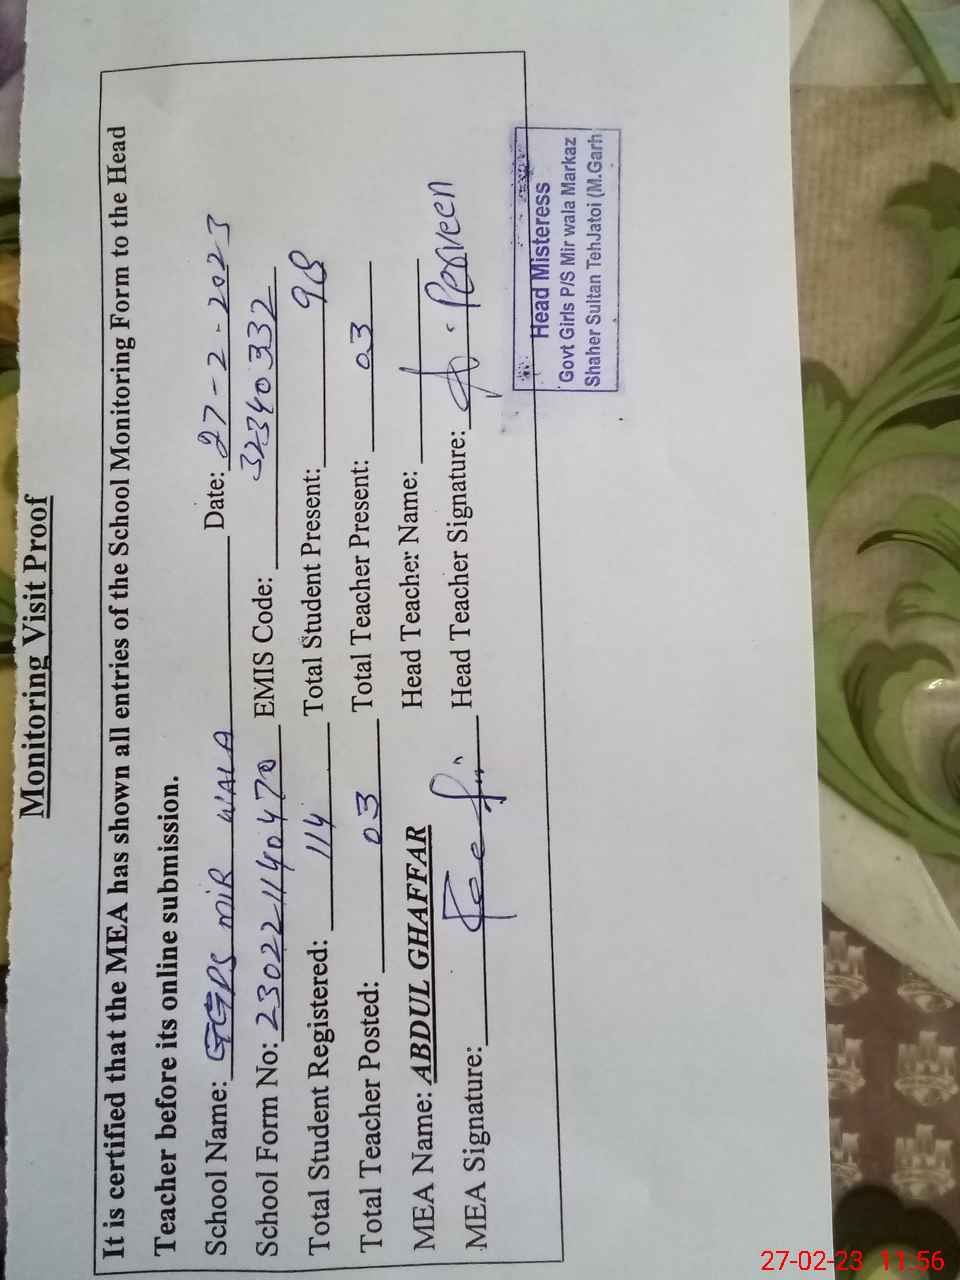 Monitoring Visit Proof
It is certified that the MEA has shown all entries of the School Monitoring Form to the Head
Teacher before its online submission.
School Name: GGPS MIR WALA Date: 27-2-2023
School Form No: 230221140470 EMIS Code: 32340332
Total Student Registered: 114 Total Student Present: 98
Total Teacher Posted: 03 Total Teacher Present: 03
MEA Name: ABDUL GHAFFAR Head Teacher Name:
MEA Signature: Head Teacher Signature: Perveen
Head Misteress
Govt Girls P/S Mir wala Markaz
Shaher Sultan TehJatoi (M.Garh
27-02-23 11:56